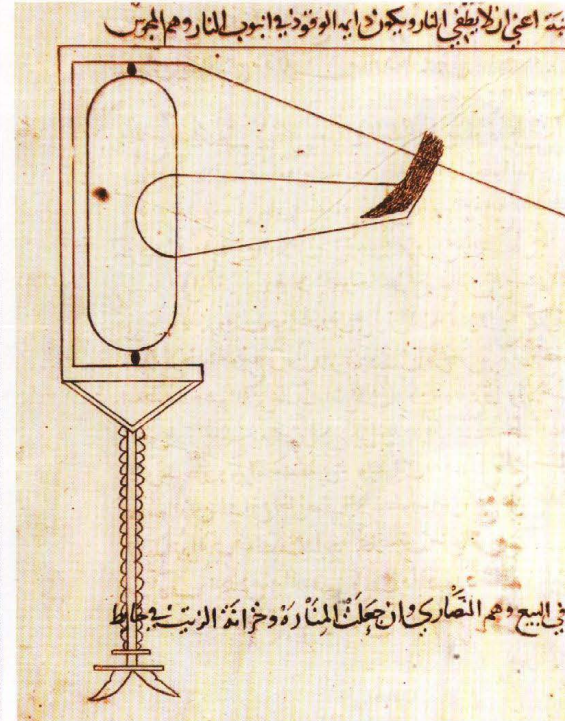 اعني ان لا يطفي النار ويكون دايم الوقود في انبوب النار وهم المجوس
في البيع وهم النصاري وان جعلت المنارة وخزانة الزيت في حايط